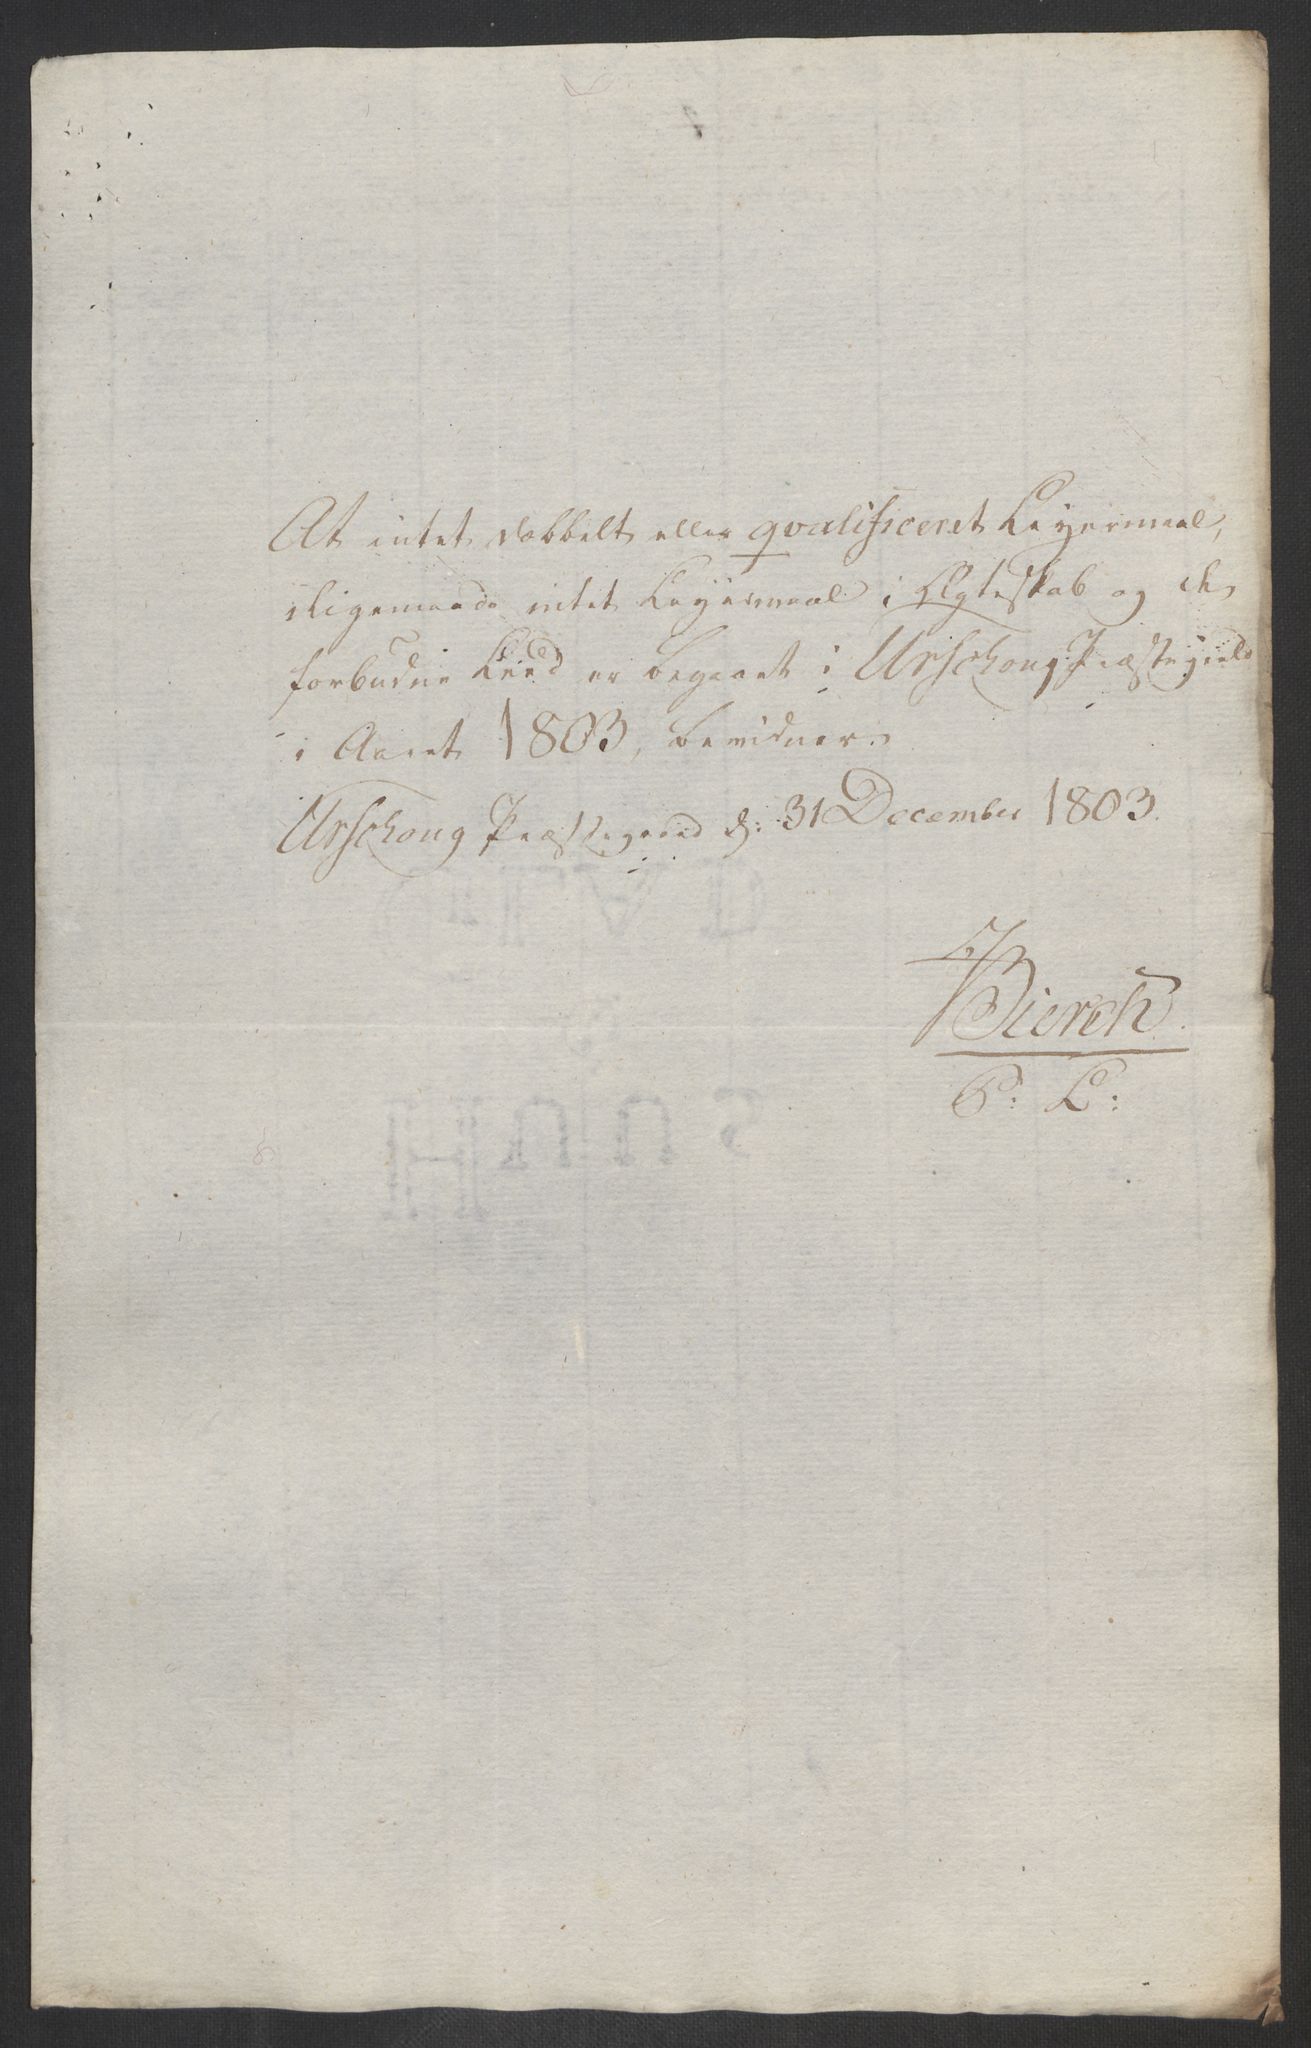 At intet dobbelt eller qvalificeret Leyermaal,
iligemaade intet Leyermaal i Ægteskab og de
forbudne Leed er begaaet i Urschoug Præstegield
i Aaret 1803, bevidner.
Urschoug Præstegaard d: 31 December 1803.
Bierch
P: L: